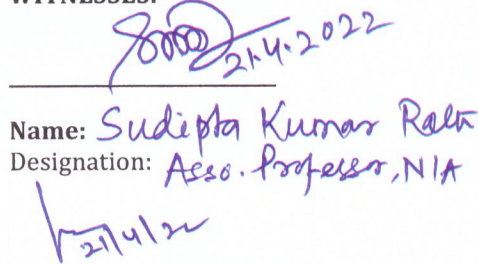 WITNESSES:
21.4.2022
Name: Sudipta Kumar Rath
Designation: Asso. Professor, NIA
21/4/22